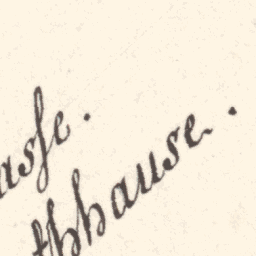 asse.
thhause.